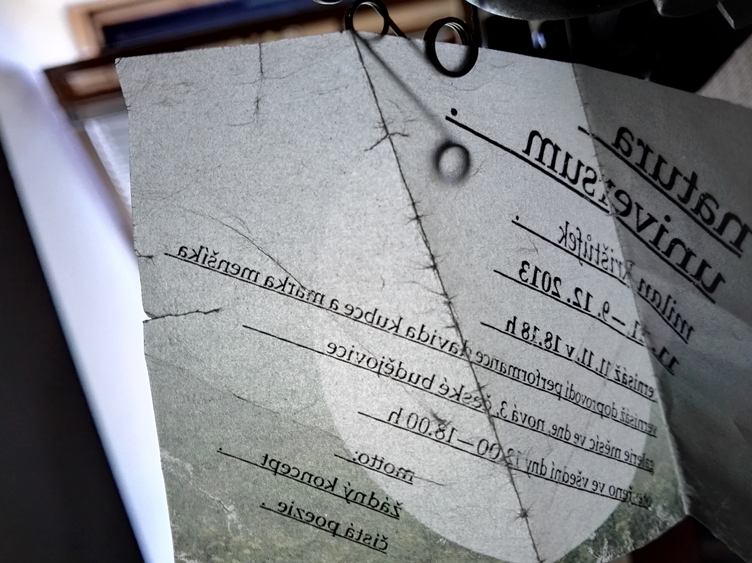 natura
universum
milan krištůfek
11. 11. – 9. 12. 2013
vernisáž 11. 11. v 18.18 h
vernisáž doprovodí performance davida kubce a marka menšíka
galerie měsíc ve dne, nová 3, české budějovice
otevřeno ve všední dny 13.00 – 18.00 h
motto:
žádný koncept
čistá poezie